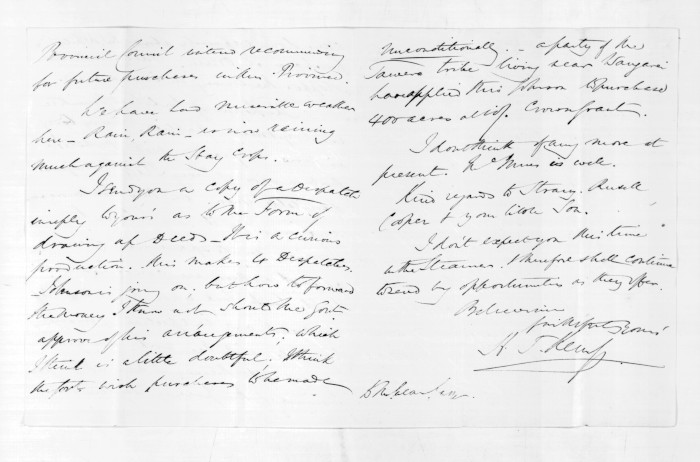 Provincial Council intend recommending
for future purchases within Province.
We have had miserable weather
here - Rain, Rain - is now raining
much against the Hay Crops.
I send you a copy of a Despatch
in reply to yours as to the Form of
drawing up Deeds - It is a curious
production. This makes 40 Despatches.
Johnson is going on, but how to forward
the money I know not should the Govt.
approve of his arrangements, which
I think is a little doubtful. I think
the Govt. wish purchases to be made
unconditionally. - a party of the
Tawera tribe living near
have applied thro' Johnson to purchase
400 acres at 10/. Crown Grant.
I don't think of any more at
present. is well.
Kind regards to Strang, Russell,
Cooper & your little Son.
I don't expect you this time
in the Steamer. I therefore shall continue
to send by opportunities as they offer.
Believe me
faithfully Yours
H. T. Kemp
D. McLean, Esq.